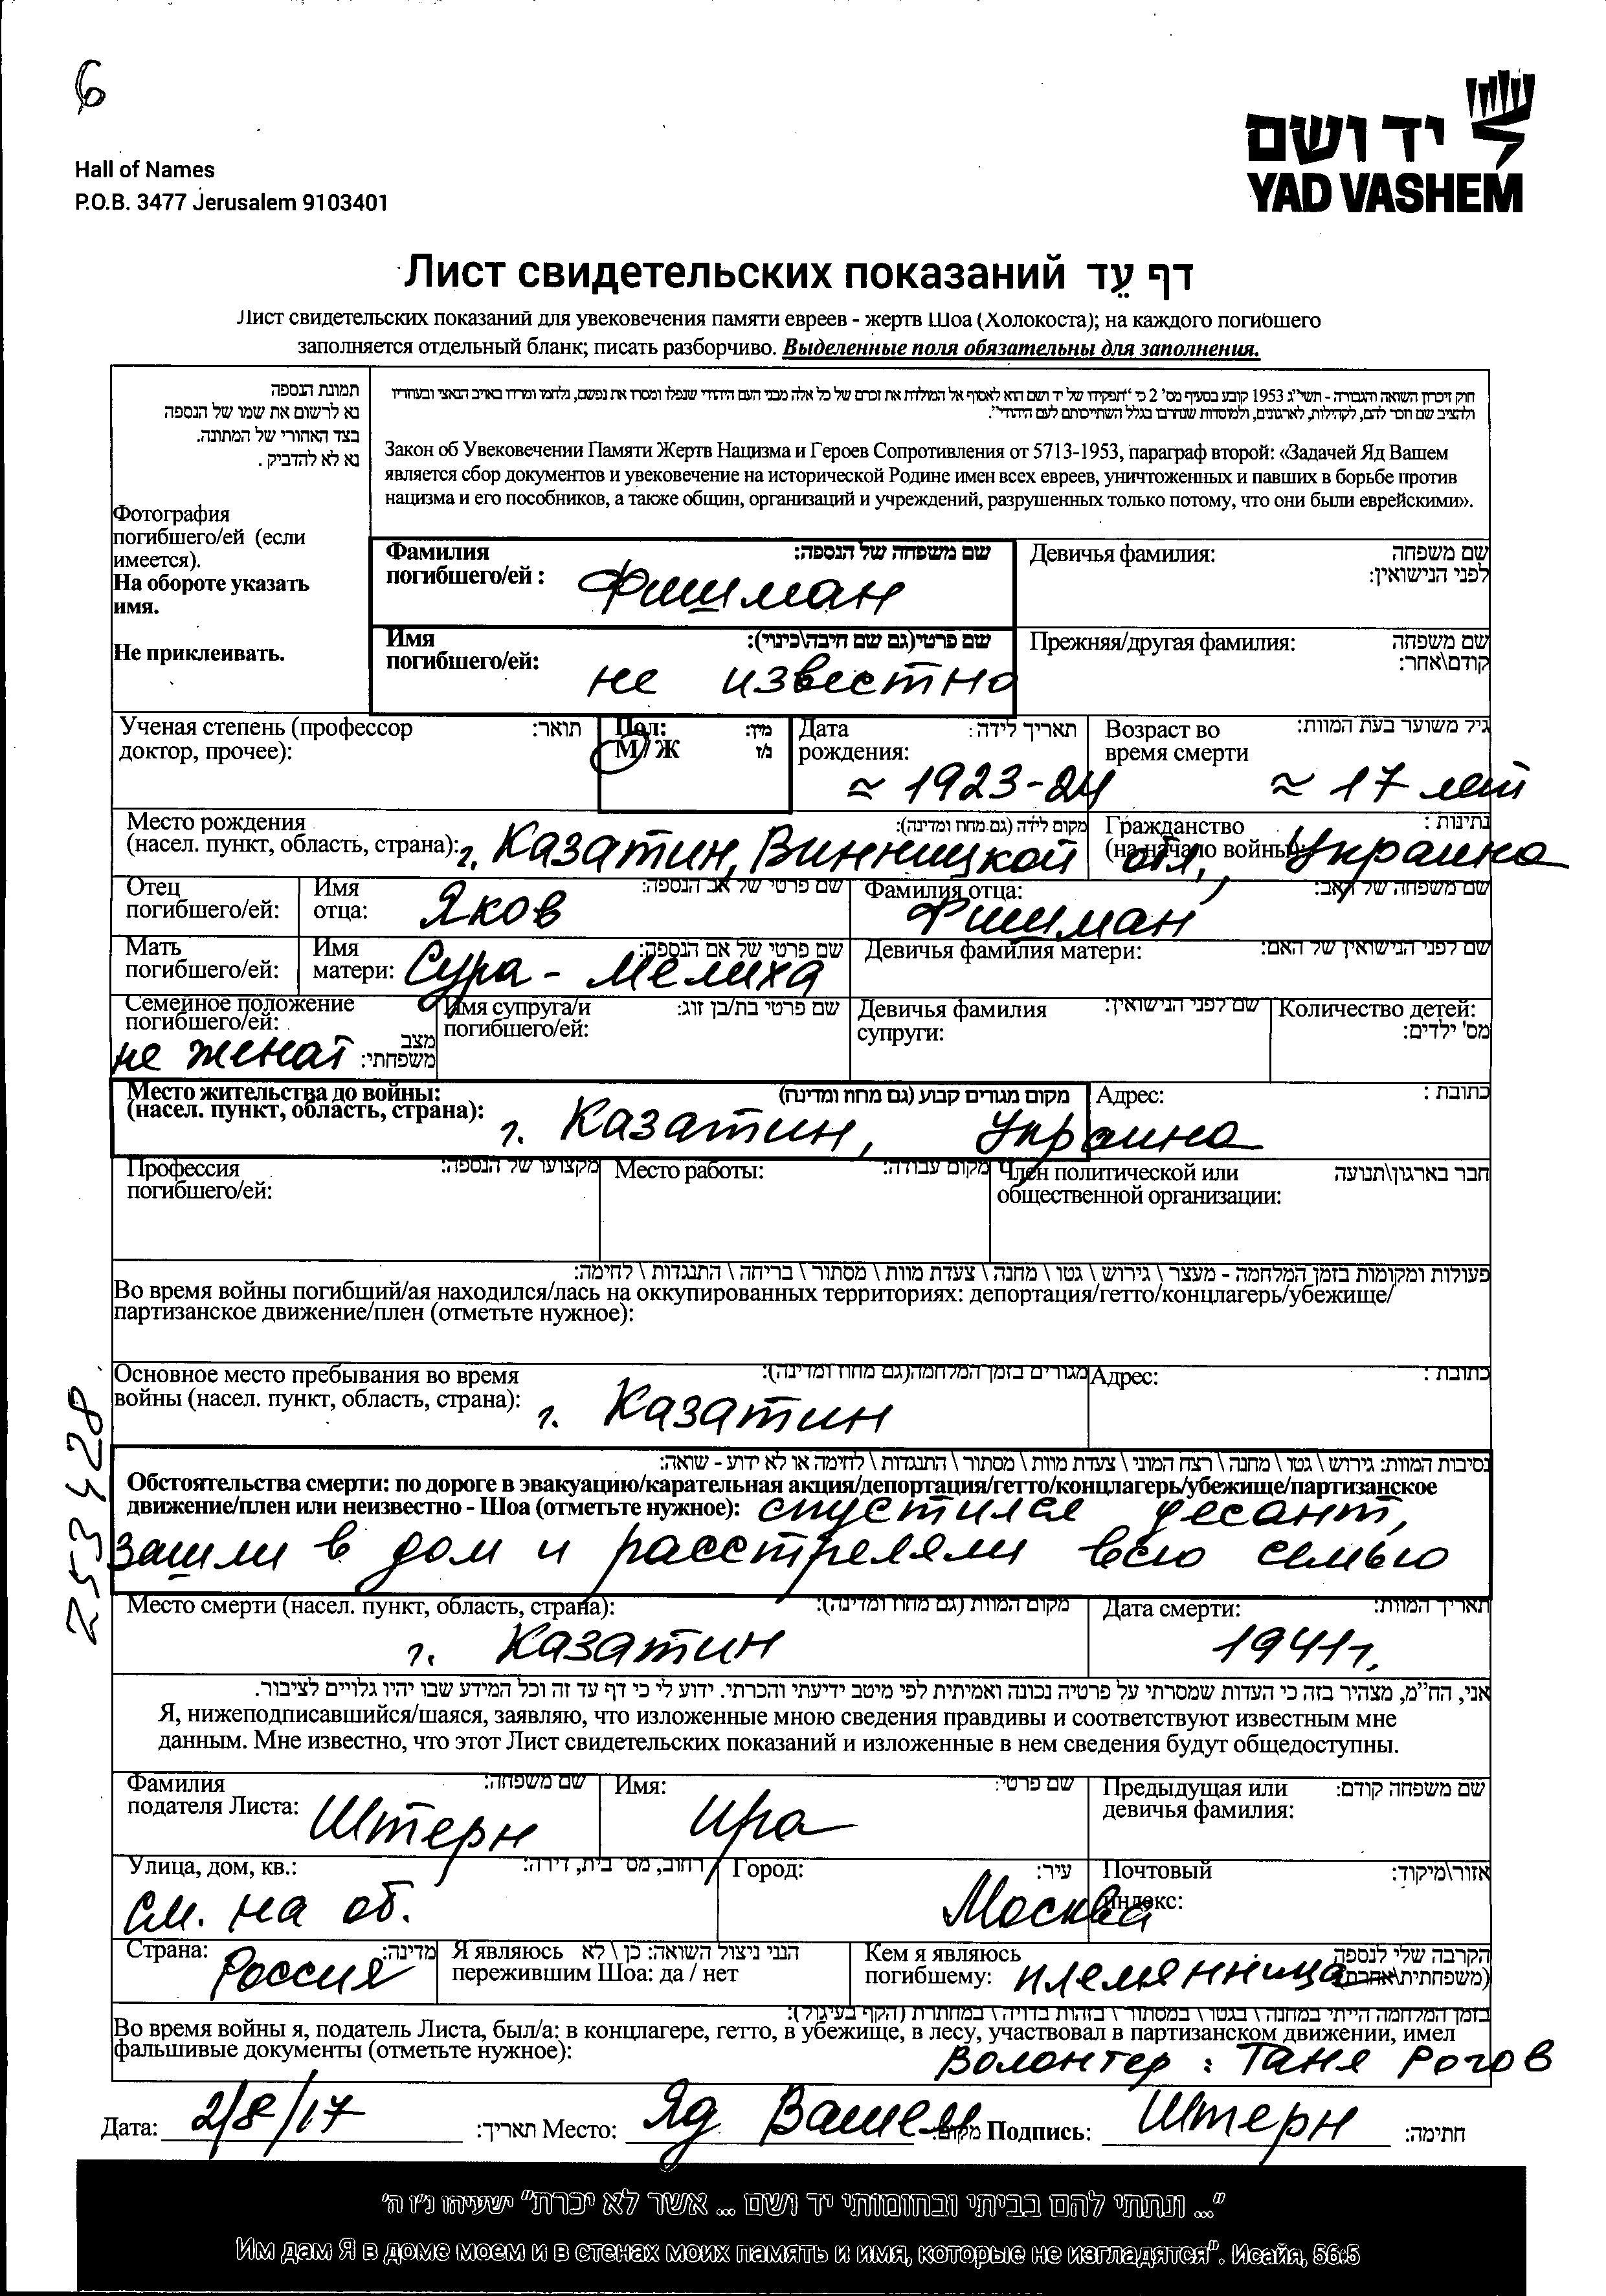 6
Hall of Names
P.O.B. 3477 Jerusalem 9103401
יד ושם
YAD VASHEM
Лист свидетельских показаний דף עֵד
Лист свидетельских показаний для увековечения памяти евреев - жертв Шоа (Холокоста); на каждого погибшего
заполняется отдельный бланк; писать разборчиво. Выделенные поля обязательны для заполнения.
תמונת הנספה
נא לרשום את שמו של הנספה
בצד האחורי של המתונה.
נא לא להדביק .
Фотография
погибшего/ей (если
имеется).
На обороте указать
имя.
Не приклеивать.
חוק זיכרון השואה והגבורה - תשי"ג 1953 קובע בסעיף מס' 2 כי "תפקידו של יד ושם הוא לאסוף אל המולדת את זכרם של כל אלה מבני העם היהודי שנפלו ומסרו את נפשם, נלחמו ומרדו באויב הנאצי ובעוזריו
ולהציב שם וזכר להם, לקהילות, לארגונים, ולמוסדות שנחרבו בגלל השתייכותם לעם היהודי".
Закон об Увековечении Памяти Жертв Нацизма и Героев Сопротивления от 5713-1953, параграф второй: «Задачей Яд Вашем
является сбор документов и увековечение на исторической Родине имен всех евреев, уничтоженных и павших в борьбе против
нацизма и его пособников, а также общин, организаций и учреждений, разрушенных только потому, что они были еврейскими».
Фамилия погибшего/ей : שם משפחה של הנספה:
Фишман
Девичья фамилия: שם משפחה לפני הנישואין:
Имя погибшего/ей: שם פרטי(גם שם חיבה\כינוי):
не известно
Прежняя/другая фамилия: שם משפחה קודם\אחר:
Ученая степень (профессор доктор, прочее): תואר:
Пол: מין:
М / Ж ז/נ
Дата рождения: תאריך לידה:
≈ 1923-24
Возраст во время смерти גיל משוער בעת המוות:
≈ 17 лет
Место рождения (насел. пункт, область, страна): מקום לידה (גם מחוז ומדינה):
г. Казатин, Винницкой обл.,
Гражданство (на начало войны): נתינות :
Украина
Отец погибшего/ей:
Имя отца: שם פרטי של אב הנספה:
Яков
Фамилия отца: שם משפחה של האב:
Фишман
Мать погибшего/ей:
Имя матери: שם פרטי של אם הנספה:
Сура - Мелиха
Девичья фамилия матери: שם לפני הנישואין של האם:
Семейное положение погибшего/ей: מצב משפחתי:
не женат
Имя супруга/и погибшего/ей: שם פרטי בת/בן זוג:
Девичья фамилия супруги: שם לפני הנישואין:
Количество детей: מס' ילדים:
Место жительства до войны: (насел. пункт, область, страна): מקום מגורים קבוע (גם מחוז ומדינה)
г. Казатин, Украина
Адрес: כתובת :
Профессия погибшего/ей: מקצועו של הנספה:
Место работы: מקום עבודה:
Член политической или общественной организации: חבר בארגון\תנועה
פעולות ומקומות בזמן המלחמה - מעצר \ גירוש \ גטו \ מחנה \ צעדת מוות \ מסתור \ בריחה \ התנגדות \ לחימה:
Во время войны погибший/ая находился/лась на оккупированных территориях: депортация/гетто/концлагерь/убежище/
партизанское движение/плен (отметьте нужное):
Основное место пребывания во время войны (насел. пункт, область, страна): מגורים בזמן המלחמה(גם מחוז ומדינה):
г. Казатин
Адрес: כתובת :
2553428
נסיבות המוות: גירוש \ גטו \ מחנה \ רצח המוני \ צעדת מוות \ מסתור \ התנגדות \ לחימה או לא ידוע - שואה:
Обстоятельства смерти: по дороге в эвакуацию/карательная акция/депортация/гетто/концлагерь/убежище/партизанское
движение/плен или неизвестно - Шоа (отметьте нужное): спустился десант,
зашли в дом и расстреляли всю семью
Место смерти (насел. пункт, область, страна): מקום המוות (גם מחוז ומדינה):
г. Казатин
Дата смерти: תאריך המוות:
1941г.
אני, הח"מ, מצהיר בזה כי העדות שמסרתי על פרטיה נכונה ואמיתית לפי מיטב ידיעתי והכרתי. ידוע לי כי דף עד זה וכל המידע שבו יהיו גלויים לציבור.
Я, нижеподписавшийся/шаяся, заявляю, что изложенные мною сведения правдивы и соответствуют известным мне
данным. Мне известно, что этот Лист свидетельских показаний и изложенные в нем сведения будут общедоступны.
Фамилия подателя Листа: שם משפחה:
Штерн
Имя: שם פרטי:
Ира
Предыдущая или девичья фамилия: שם משפחה קודם:
Улица, дом, кв.: רחוב, מס' בית, דירה:
см. на об.
Город: עיר:
Москва
Почтовый индекс: אזור\מיקוד:
Страна: מדינה:
Россия
Я являюсь пережившим Шоа: да / нет הנני ניצול השואה: כן \ לא
Кем я являюсь погибшему: הקרבה שלי לנספה (משפחתית\אחרת)
племянница
בזמן המלחמה הייתי במחנה \ בגטו \ במסתור \ בזהות בדויה \ במחתרת (הקף בעיגול):
Во время войны я, податель Листа, был/а: в концлагере, гетто, в убежище, в лесу, участвовал в партизанском движении, имел
фальшивые документы (отметьте нужное):
Волонтер : Таня Рогов
Дата: 2/8/17 תאריך: Место: Яд Вашем מקום: Подпись: Штерн חתימה:
"... ונתתי להם בביתי ובחומותי יד ושם ... אשר לא יכרת" ישעיהו נ"ו ה'
Им дам Я в доме моем и в стенах моих память и имя, которые не изгладятся". Исайя, 56:5